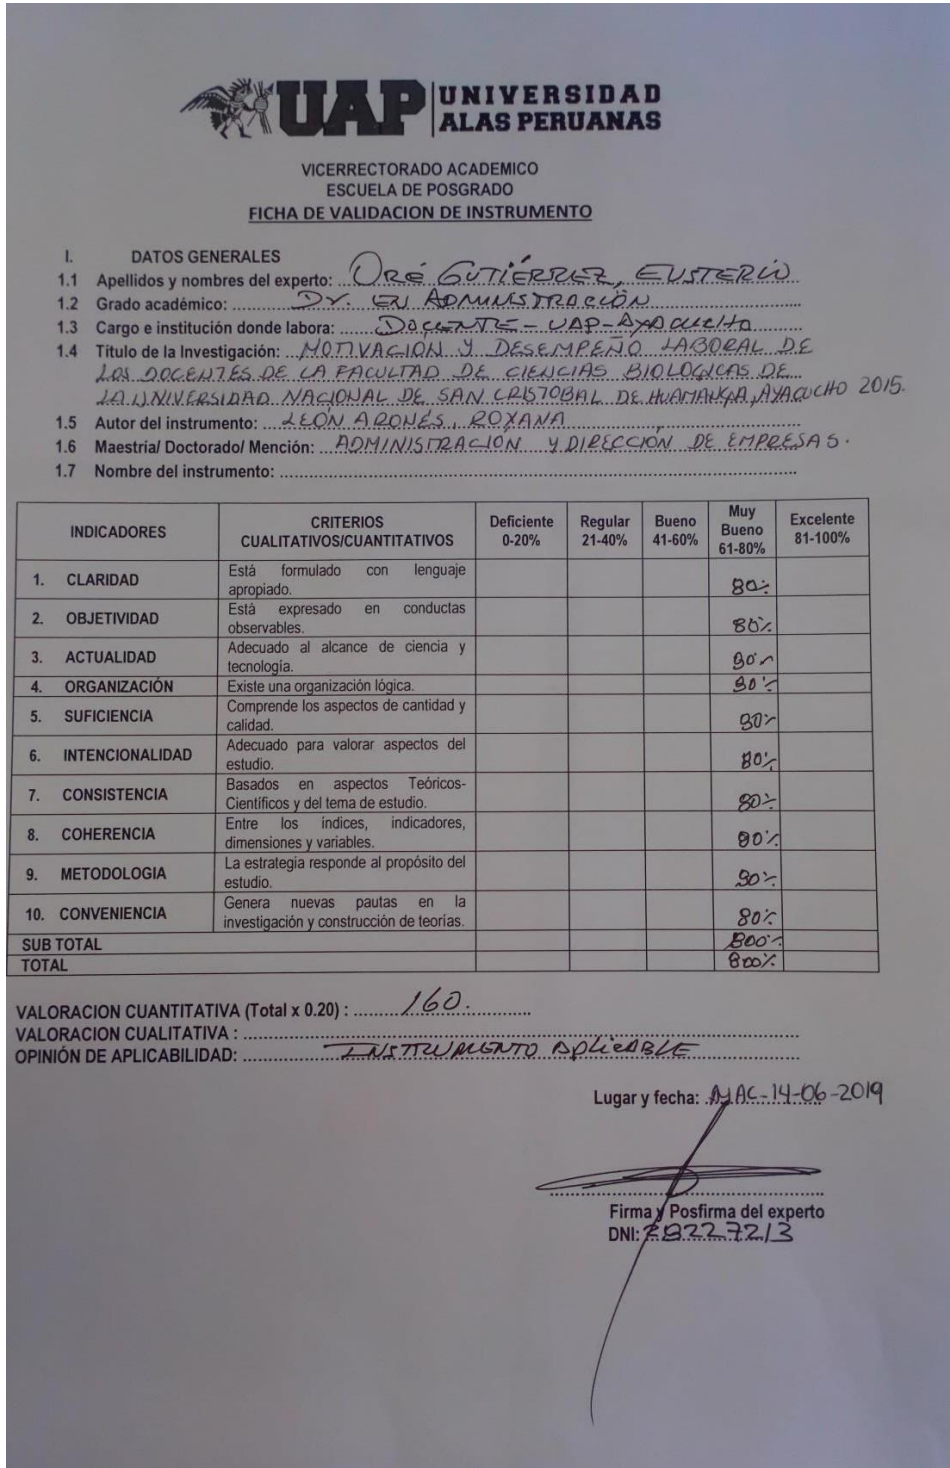 UAP UNIVERSIDAD
ALAS PERUANAS
VICERRECTORADO ACADEMICO
ESCUELA DE POSGRADO
FICHA DE VALIDACION DE INSTRUMENTO
I. DATOS GENERALES
1.1 Apellidos y nombres del experto: ORÉ GUTIÉRREZ, EUSTERIO
1.2 Grado académico: Dr. EN ADMINISTRACIÓN
1.3 Cargo e institución donde labora: DOCENTE - UAP - AYACUCHO
1.4 Título de la Investigación: MOTIVACION Y DESEMPEÑO LABORAL DE
LOS DOCENTES DE LA FACULTAD DE CIENCIAS BIOLOGICAS DE
LA UNIVERSIDAD NACIONAL DE SAN CRISTOBAL DE HUAMANGA, AYACUCHO 2015.
1.5 Autor del instrumento: LEÓN ARONÉS, ROXANA
1.6 Maestría/ Doctorado/ Mención: ADMINISTRACION Y DIRECCIÓN DE EMPRESAS.
1.7 Nombre del instrumento:
INDICADORES CRITERIOS CUALITATIVOS/CUANTITATIVOS Deficiente 0-20% Regular 21-40% Bueno 41-60% Muy Bueno 61-80% Excelente 81-100%
1. CLARIDAD Está formulado con lenguaje
apropiado. 80%
2. OBJETIVIDAD Está expresado en conductas
observables. 80%
3. ACTUALIDAD Adecuado al alcance de ciencia y
tecnología. 80%
4. ORGANIZACIÓN Existe una organización lógica. 80%
5. SUFICIENCIA Comprende los aspectos de cantidad y
calidad. 80%
6. INTENCIONALIDAD Adecuado para valorar aspectos del
estudio. 80%
7. CONSISTENCIA Basados en aspectos Teóricos-
Científicos y del tema de estudio. 80%
8. COHERENCIA Entre los índices, indicadores,
dimensiones y variables. 80%
9. METODOLOGIA La estrategia responde al propósito del
estudio. 80%
10. CONVENIENCIA Genera nuevas pautas en la
investigación y construcción de teorías. 80%
SUB TOTAL 800%
TOTAL 800%
VALORACION CUANTITATIVA (Total x 0.20) : 160.
VALORACION CUALITATIVA :
OPINIÓN DE APLICABILIDAD: INSTRUMENTO APLICABLE
Lugar y fecha: AYAC-14-06-2019
Firma y Posfirma del experto
DNI: 28227213